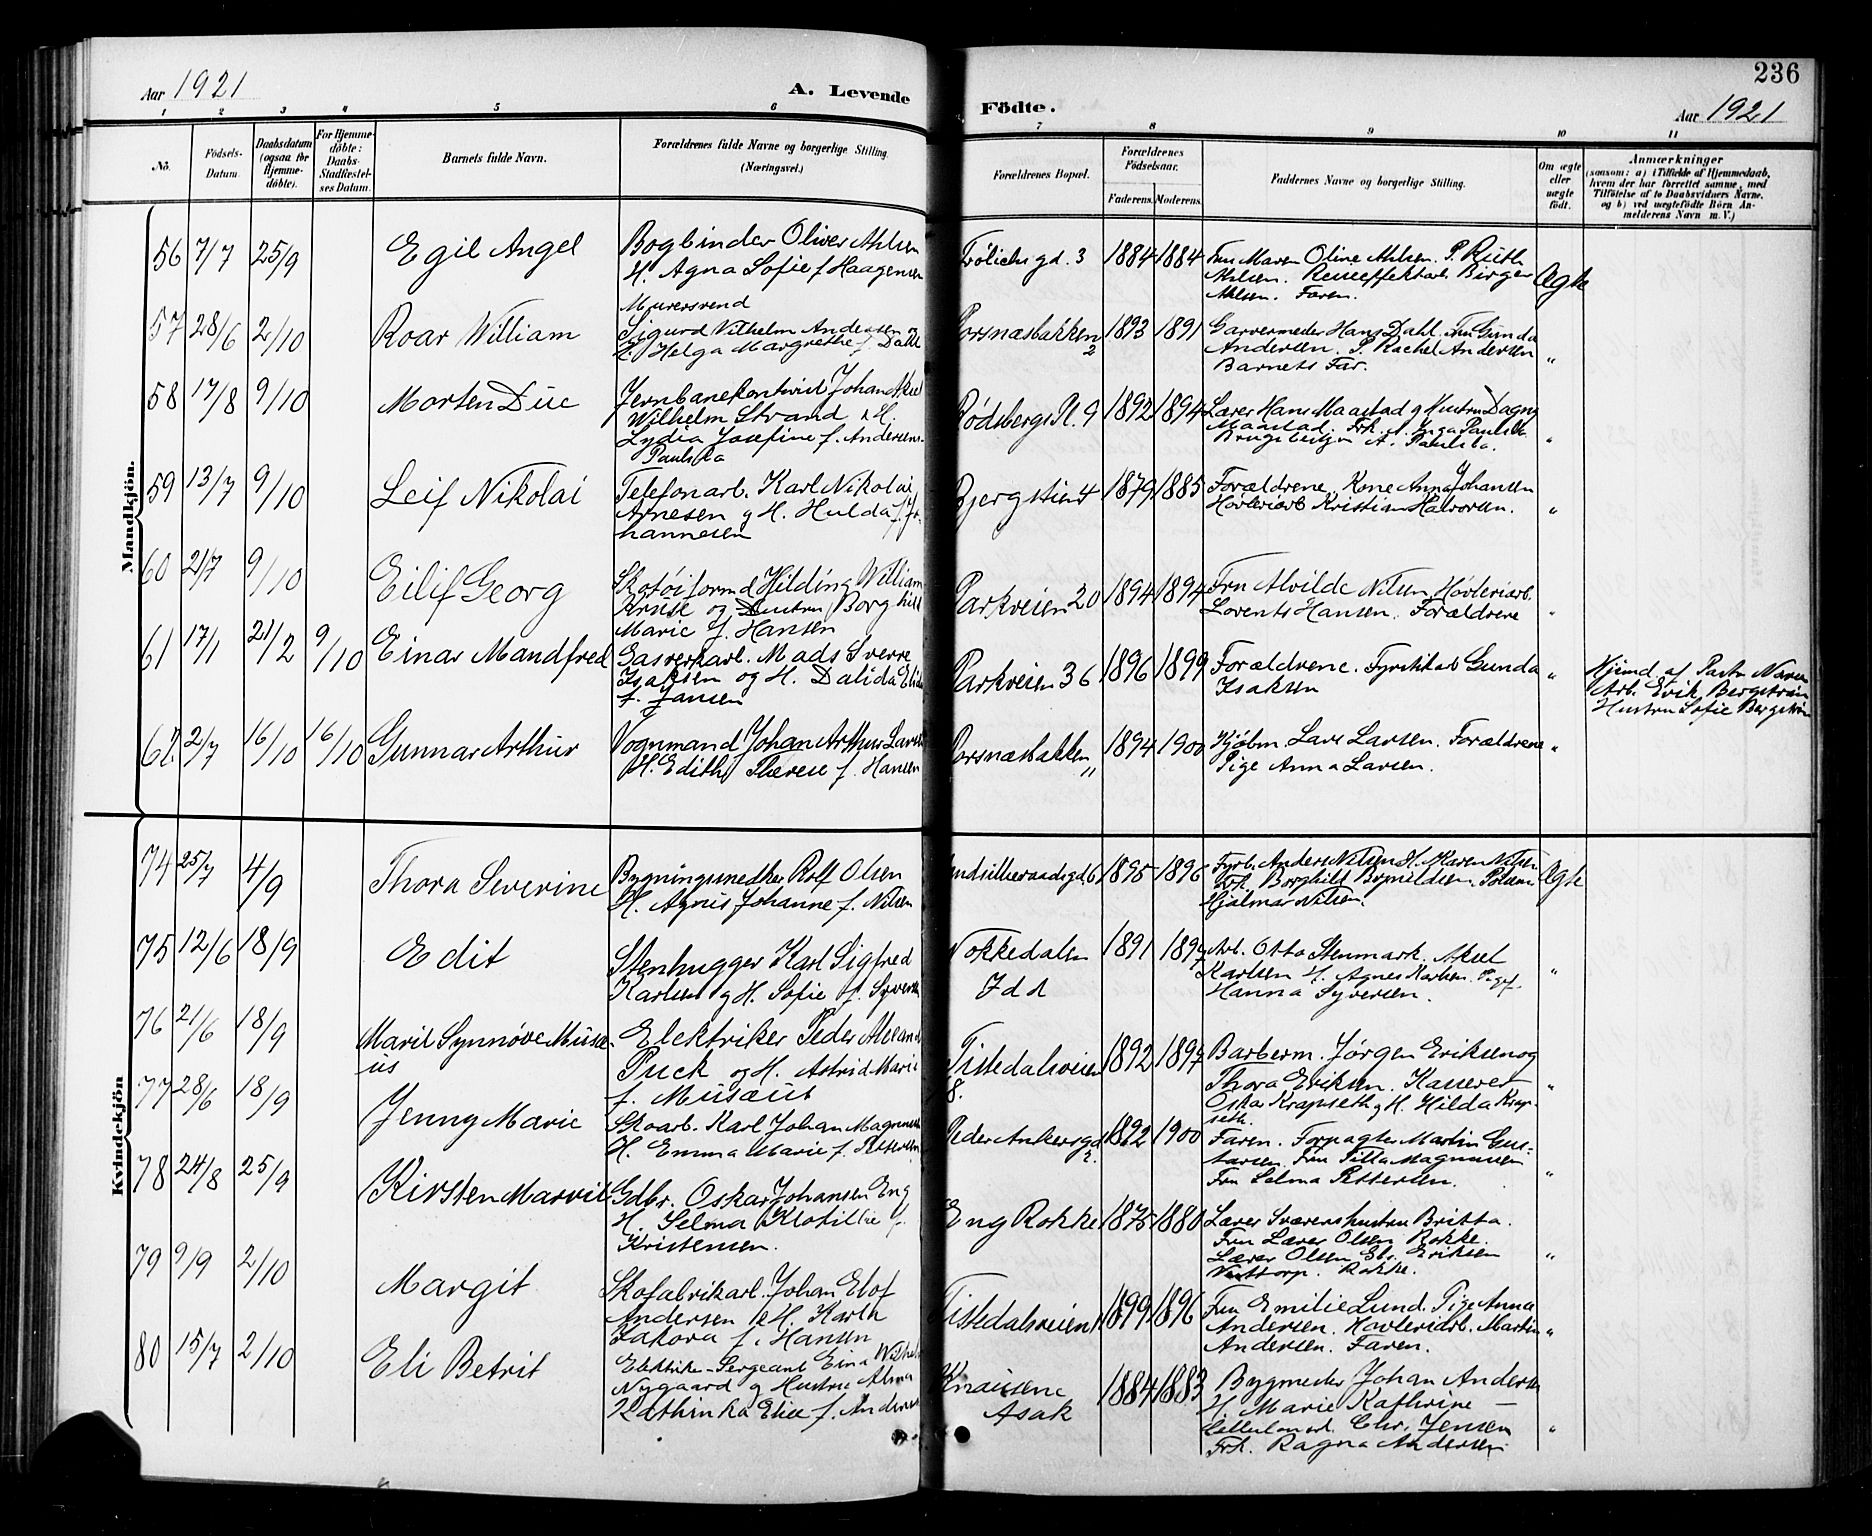 Aar 1921
A. Levende
1 2 3 4 5 6
No.
Födsels-Datum.
Daabsdatum (ogsaa for Hjemme-döbte).
For Hjemme-döbte: Daabs-Stadfæstelses Datum.
Barnets fulde Navn.
Forældrenes fulde Navne og borgerlige Stilling. (Næringsvei.)
Mandkjön.
56 7/7 25/9 Egil Angel
Bogbinder Oliver Ahlsen
H. Agna Sofie f. Haagensen
57 28/6 2/10 Roar William
Murersvend
Sigurd Vilhelm Andersen og
H. Helga Margrethe f. Dahl
58 17/8 9/10 Morten Due
Jernbanekontorist Johan Aksel
Wilhelm Strand & H.
Lydia Josefine f. Andersen-
Paulsbo
59 13/7 9/10 Leif Nikolai
Telefonarb. Karl Nikolai
Arnesen og H. Hulda f. Jo-
hannesen
60 21/7 9/10 Eilif Georg
Skotøiformd Hilding William
Kruse og Hustru Borghild
Marie f. Hansen
61 17/1 21/2 9/10 Einar Mandfred
Gasverkarb. Mads Sverre
Isaksen og H. Dalida Elida
f. Jansen
62 2/7 16/10 16/10 Gunnar Arthur
Vognmand Johan Arthur Larsen
H. Edith Therese f. Hansen
Kvindekjön
74 25/7 4/9 Thora Severine
Bygningssnedker Rolf Olsen
H. Agnes Johanne f. Nilsen
75 12/6 18/9 Edit
Stenhugger Karl Sigfred
Karlsen og H. Sofie f. Syversen
76 21/6 18/9 Maril Synnøve Musæ-
us
Elektriker Peder Alexander
Puck og H. Astrid Marie
f. Musæus
77 28/6 18/9 Jenny Marie
Skoarb. Karl Johan Magnussen
H. Emma Marie f. Pettersen
78 24/8 25/9 Kirsten Marvil
Gdbr. Oskar Johansen Eng
H. Selma Klotillie f.
Kristensen.
79 9/9 2/10 Margit
Skofabrikarb. Johan Elof
Andersen & H. Karla
Zakora f. Hansen
80 15/7 2/10 Eli Betrit
Elektrik-Sergeant Einar Wilhelm
Nygaard og Hustru Alma
Kathinka Elise f. Andersen
236
Födte.
Aar 1921
7 8 9 10 11
Forældrenes Bopæl.
Forældrenes Födselsaar.
Faderens. Moderens.
Faddernes Navne og borgerlige Stilling.
Om ægte eller uægte födt.
Anmærkninger
(saasom: a) i Tilfælde af Hjemmedaab, hvem der har forrettet samme, med Tilföielse af to Daabsvidners Navne, og b) ved uægtefödte Börn Anmelderens Navn m. V.)
Frølichsgd. 3 1884 1884
Fru Maren Oline Ahlsen. P. Ruth
Ahlsen. Birger
Ahlsen. Faren. Ægte
Porsnæsbakken 2 1893 1891
Garvermester Hans Dahl. Fru Gunda
Andersen. P. Rachel Andersen
Barnets Far. "
Rødsbergs Pl. 9 1892 1894
Lærer Hans Maastad og Hustru Dagny
Maastad. Frk. A. Inga Paulsbo.
A. Paulsbo. "
Bjergstien 4 1879 1885
Forældrene. Kone Anna Johansen
Høvleriarb Kristian Halvorsen. "
Parkveien 20 1894 1894
Fru Alvilde Nilsen Høvleriarb.
Lorents Hansen. Forældrene "
Parkveien 36 1896 1899
Forældrene. Gunda
Isaksen "
Hjemd. af Pastor
Arb. Erik Bergstrøm
Hustru Sofie Bergstrøm
Porsnæsbakken 11 1894 1900
Kjøbm. Lars Larsen. Forældrene
Pige Anna Larsen. "
1895 1896
Fyrb. Anders Nilsen H. Karen Nilsen
Frk. Borghild
Hjalmar Nilsen. Ægte
Nokkedalen
Idd 1891 1897
Arb. Otto Stenmark. Aksel
Karlsen H. Agnes Karlsen.
Hanna Syversen. "
Tistedalsveien
18. 1892 1897
Barberm. Jørgen Eriksen og
Thora Eriksen. Kasserer
Oskar Krapseth og H. Hilda Krap-
seth. "
Peder Ankersgd 2. 1892 1900
Faren. Forpagter Martin Gus-
tavsen. Fru Magnussen
Fru Selma Pettersen. "
Eng Rokke 1875 1880
Lærer hustru Britta.
Fru Lærer Olsen Rokke.
Lærer Olsen Els. Eriksen
Rokke. "
Tistedalsveien 1899 1896
Fru Emilie Lund. Pige Anna
Andersen. Høvleriarb. Martin
Andersen. Faren. "
Knausene
Asak 1884 1883
Bygmester Johan Andersen
H. Marie Kathrine —
Chr. Jensen
Frk. Ragna Andersen "